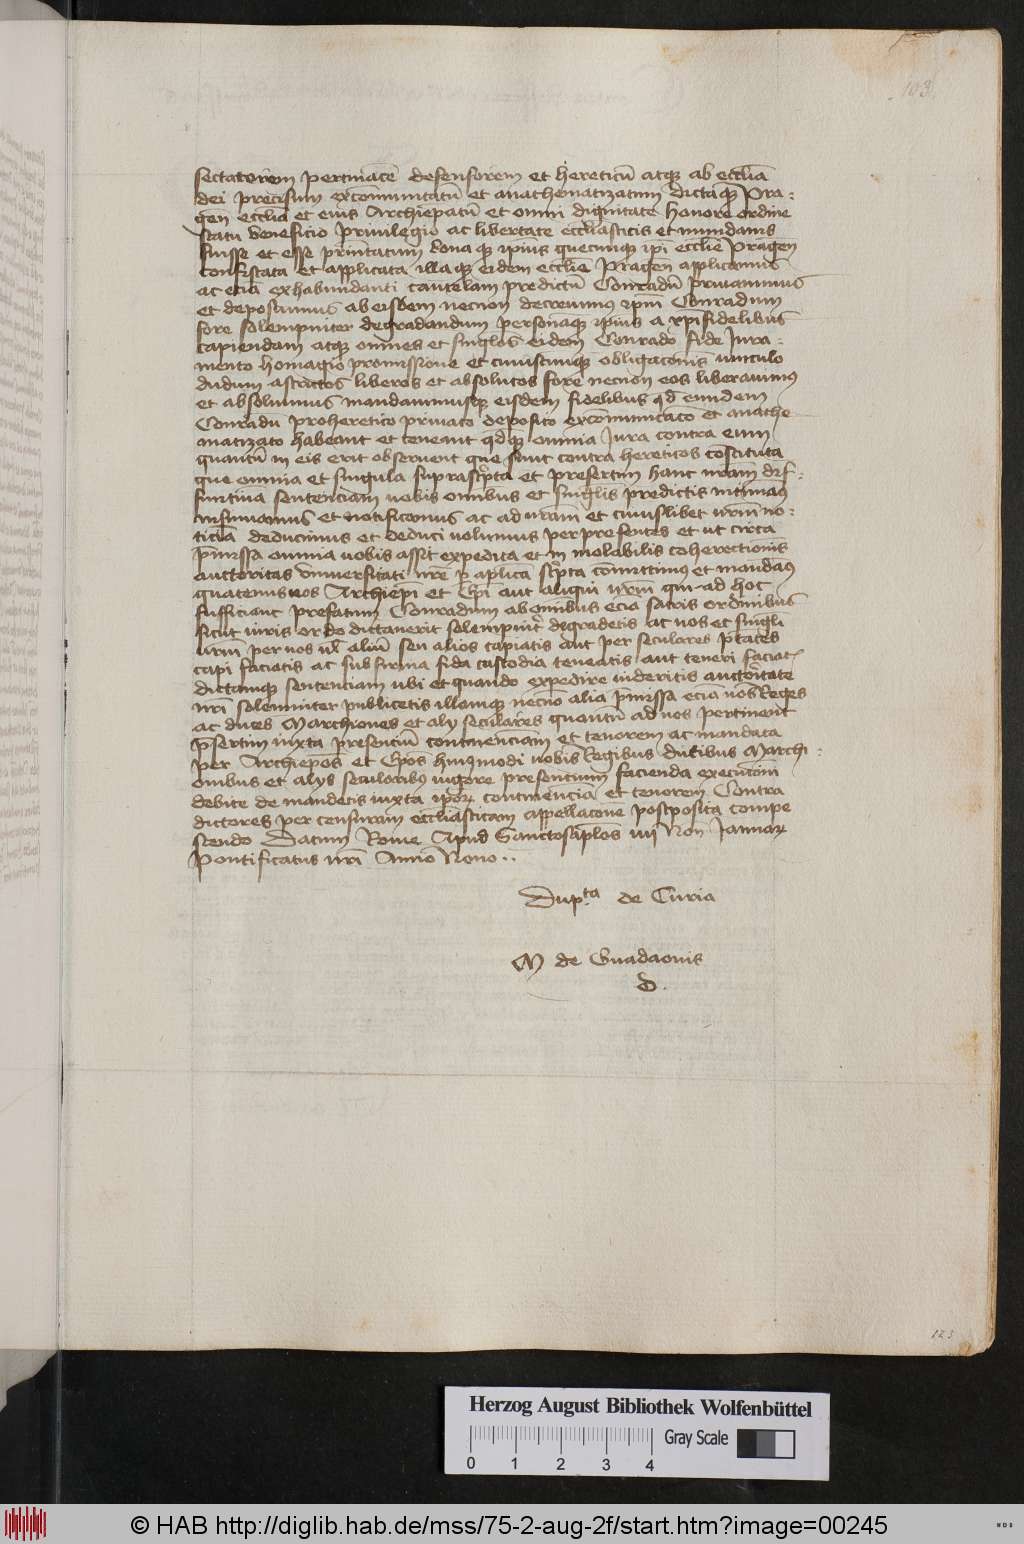 103
sectatorem pertinacē defensorem et hereticū atqꝫ ab ecclīa
dei precisum excōmunicatū et anathematizatum dictāqꝫ Pra-
gen̄ ecclīā et eius Archiepatū et omni dignitate honore ordine
statu beneficio privilegio ac libertate ecclīasticis et mundanis
fuisse et esse privatum bona qꝫ ipius quecumqꝫ ipī ecclīe Pragen̄
confiscata et applicata illa qꝫ eidem ecclīe Pragen̄ applicamus
ac eciā exhabundanti cautelam predictū Conradū privavimus
et deposuimus ab eisdem necnon decrevimus ipm̄ Conradum
fore solempniter degradandum personāqꝫ ipius a xpifidelibus
capiendam atqꝫ omnes et singlos eidem Conrado fide Jura-
mento homagio promissione et cuiuscumqꝫ obligaconis vinculo
dudum astrictos liberos et absolutos fore necnon eos liberavimus
et absolvimus mandavimusqꝫ eisdem fidelibus qd eundem
Conradū pro heretico privato deposito excōmunicato et anathe
matizato habeant et teneant qdqꝫ omnia Jura contra eum
quantū in eis erit observent que sunt contra hereticos constituta
que omnia et singula suprascpta et presertim hanc nrām dif-
finitivā sentenciam vobis omnibus et singlis predictis intimam9
insinuamus et notificamus ac ad vrām et cuiuslibet vrm̄ no-
ticiā deducimus et deduci volumus per presentes et ut circa
pmissa omnia vobis assit expedita et in
auctoritas universitati vre p aplicā scpta comittimus et mandam9
quatenus vos Archiepī et Epī aut aliqui vrm̄ qui ad hoc
sufficiant prefatum Conradum ab omībus eciā sacris ordinibus
sicut iuris ordo dictaverit solempnit degradetis ac vos et singli
vrm̄ per vos vl aliū seu alios capiatis aut per seculares ptātes
capi faciatis ac sub firma fida custodia teneatis aut teneri faciat
dictamqꝫ sentenciam ubi et quando expedire videritis auctoritate
nrī solemniter publicetis illamqꝫ necnō alia pmissa eciā vos Reges
ac duces Marchiones et alij seculares quantū ad vos pertinent
psertim iuxta presenciū continenciam et tenorem ac mandata
per Archiepos et Epos huiusmodi vobis Regibus ducibus Marchi-
onibus et alijs secularibus vigore presentium facienda execucōni
debite demandetis iuxta ipoꝝ continenciā et tenorem Contra
dictores per censuram ecclīasticam appellacone postposita compe
scendo Datum Rome Apud Sanctosaplos iiij Non Januaꝝ
Pontificatus nrī Anno Nono..
Dupta de Curia
M de Guadaonis
D.
123
Herzog August Bibliothek Wolfenbüttel
Gray Scale
0 1 2 3 4
© HAB http://diglib.hab.de/mss/75-2-aug-2f/start.htm?image=00245